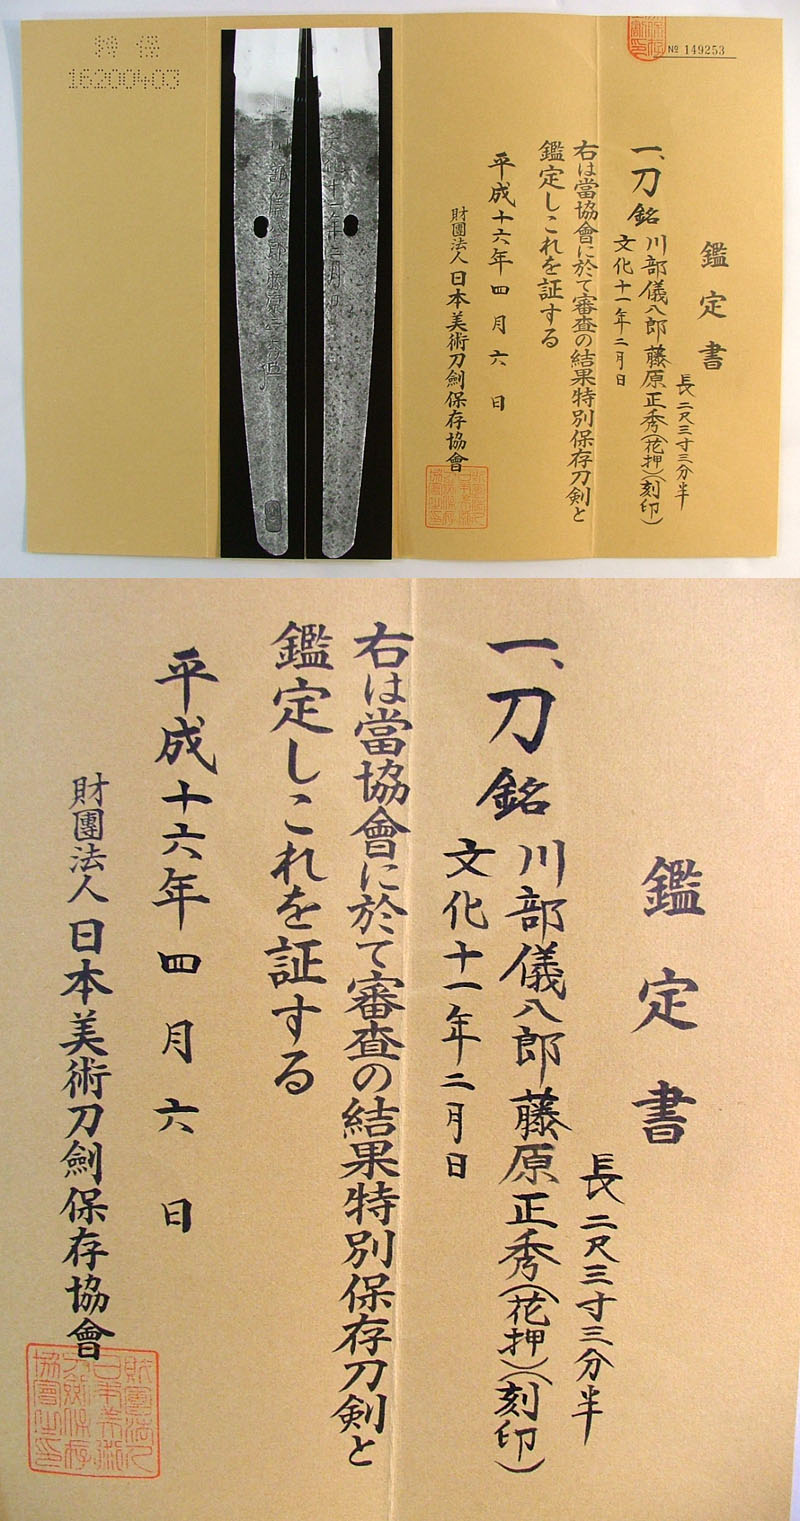 特保
16200403
No 149253
鑑定書
長二尺三寸三分半
一、刀 銘 川部儀八郎藤原正秀(花押)(刻印)
文化十一年二月日
右は當協會に於て審査の結果特別保存刀剣と
鑑定しこれを証する
平成十六年四月六日
財團法人日本美術刀劍保存協會
文化十一年二月日
鑑定書
長二尺三寸三分半
一、刀 銘 川部儀八郎藤原正秀(花押)(刻印)
文化十一年二月日
右は當協會に於て審査の結果特別保存刀剣と
鑑定しこれを証する
平成十六年四月六日
財團法人日本美術刀劍保存協會